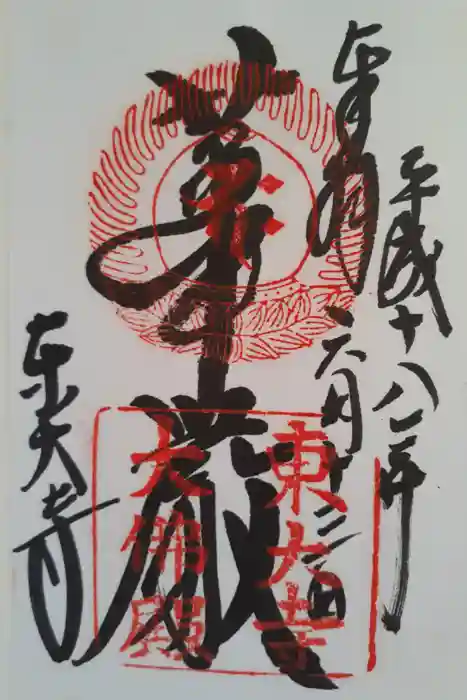 平成十八年
奉拝
六月
華厳
東大寺
東大寺
大佛殿